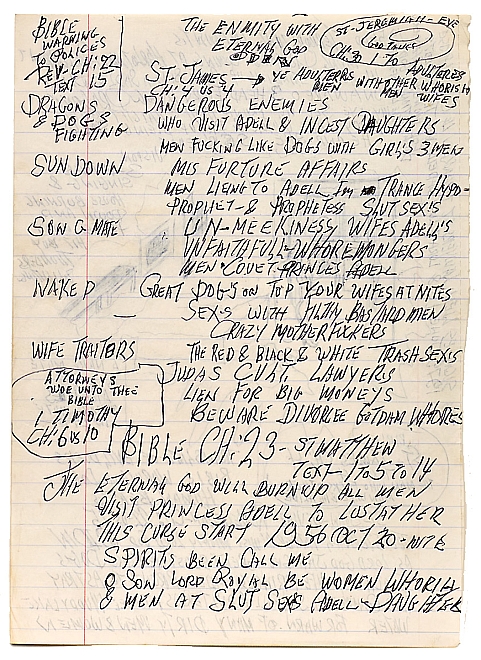 BIBLE
WARNING
TO POLICES
REV-CH:22
TEXT 15
DRAGONS
& DOGS
FIGHTING
SUNDOWN
SON G MATE
WAKE P
WIFE TRAITORS
ATTORNEYS
WOE UNTO THEE
BIBLE
I TIMOTHY
CH:6 VS 10
THE ENMITY WITH
ETERNAL GOD
ST-JEREMIAH-EVE
GOD TALKS
CH:30 1 TO 70
ST. JAMES → YE ADULTERERS WITH OTHER WHORISH
CH:4 VS 4 MEN MEN WIFES
ADULTERES
DANGEROUS ENEMIES
WHO VISIT ADELL & INCEST DAUGHTERS
MEN FUCKING LIKE DOGS WITH GIRL'S 3 MEN
MIS FURTURE AFFAIRS
MEN LIENG TO ADELL TRANCE HYPO-
PROPHET-& PROPHETESS SLUT SEX'S
UN-MEEKINESS, WIFES ADELL'S
UNFAITHFULL-WHOREMONGERS
MEN COVET PRINCES ADELL
GREAT DOG'S ON TOP YOUR WIFES AT NITES
SEX'S WITH FILTHY BASTARD MEN
CRAZY MOTHER FUCKERS
THE RED & BLACK & WHITE TRASH SEXIS
JUDAS CULT, LAWYERS
LIEN FOR BIG MONEYS
BEWARE DIVORCEE GOTDAM WHORES
BIBLE CH:23- ST MATTHEW
TEXT-1 TO 5 TO 14
THE ETERNAL GOD WILL BURN UP ALL MEN
VISIT PRINCESS ADELL TO LUST AT HER
THIS CURSE START 1956 OCT 20-NITE
SPIRITS BEEN CALL ME
O SON LORD ROYAL BE WOMEN WHORISH
& MEN AT SLUT SEXS ADELL-DAUGHTER